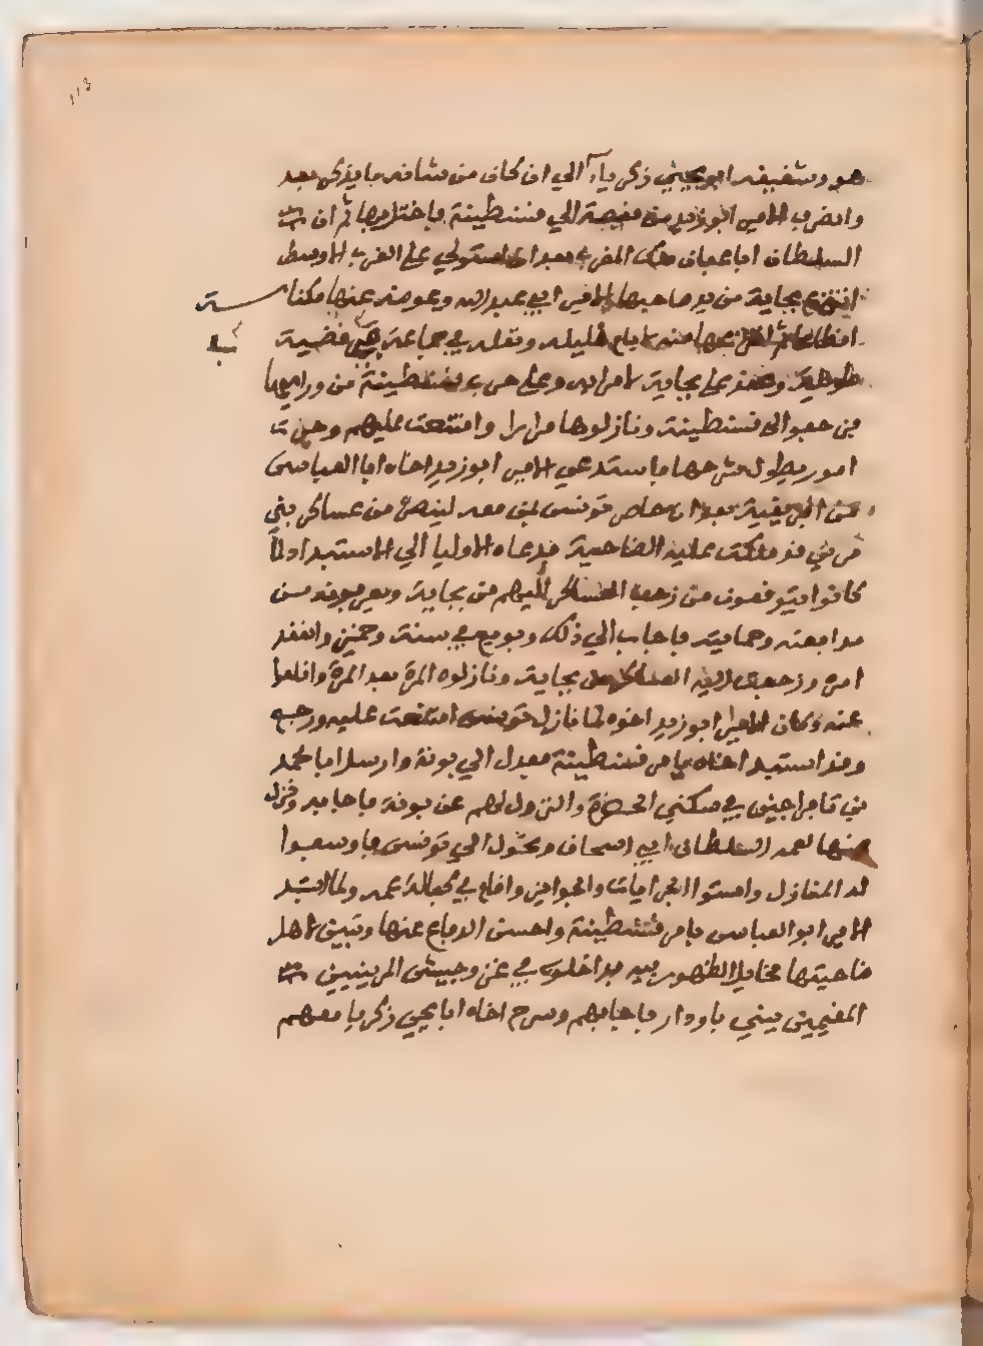 113
هو وشقيقه ابو يحيى زكرياء الي ان كان من شانه ما يذكر بعد
وانصرف الامير ابو زيد من قفصة الي قسنطينة باختلالها ثم ان
السلطان ابا عنان ملك المغرب بعد ان استولي على المغرب الاوسط
انتزع بجاية من يد صاحبها الامير ابي عبد الله وعوضه عنها مكناسة
اقطاعا ثم عنها منه لايام قليلة ونقله في جماعة في قضية
طويلة وعقد على بجاية لامرايه وعلى حرب قسنطينة من ورايها
فزحفوا الى قسنطينة ونازلوها مرارا وامتنعت عليهم وجرت
امور يطول شرحها فاستدعي الامير ابو زيد اخاه ابا العباس
من افريقية بعد ان حاصر تونس بمن معه لينصر من عساكر بني
مرين قد ملكت عليه الضاحية فدعاه الاوليا الي الاستبداد لما
كانوا يتوقعون من زحف العساكر اليهم من بجاية ويعرفونه من
مدافعته وحمايته فاجاب الي ذلك وبويع في سنة وخمسين وانعقد
امره وزحفت اليه العساكر من بجاية ونازلوه المرة بعد المرة واقلعوا
عنه وكان الامير ابو زيد اخوه لما نازل تونس امتنعت عليه ورجع
وقد استبد اخاه بامر قسنطينة فعدل الي بونة وارسل ابا محمد
بن تافراجين في سكني الحضرة والنزول لهم عن بونة فاجابه ونزل
عنها لعمه السلطان ابي اسحاق وتحول الي تونس فاوسعوا
له المنازل واسنوا الجرايات والجوايز واقام في كفالة عمه ولما استبد
الامير ابو العباس بامر قسنطينة واحسن الدفاع عنها وتبين لاهل
ضاحيتها مخايل الظهور فيه فداخلوه في غزو جيش المرينيين
المقيمين ببني باورار فاجابهم وسرح اخاه ابا يحيى زكريا معهم